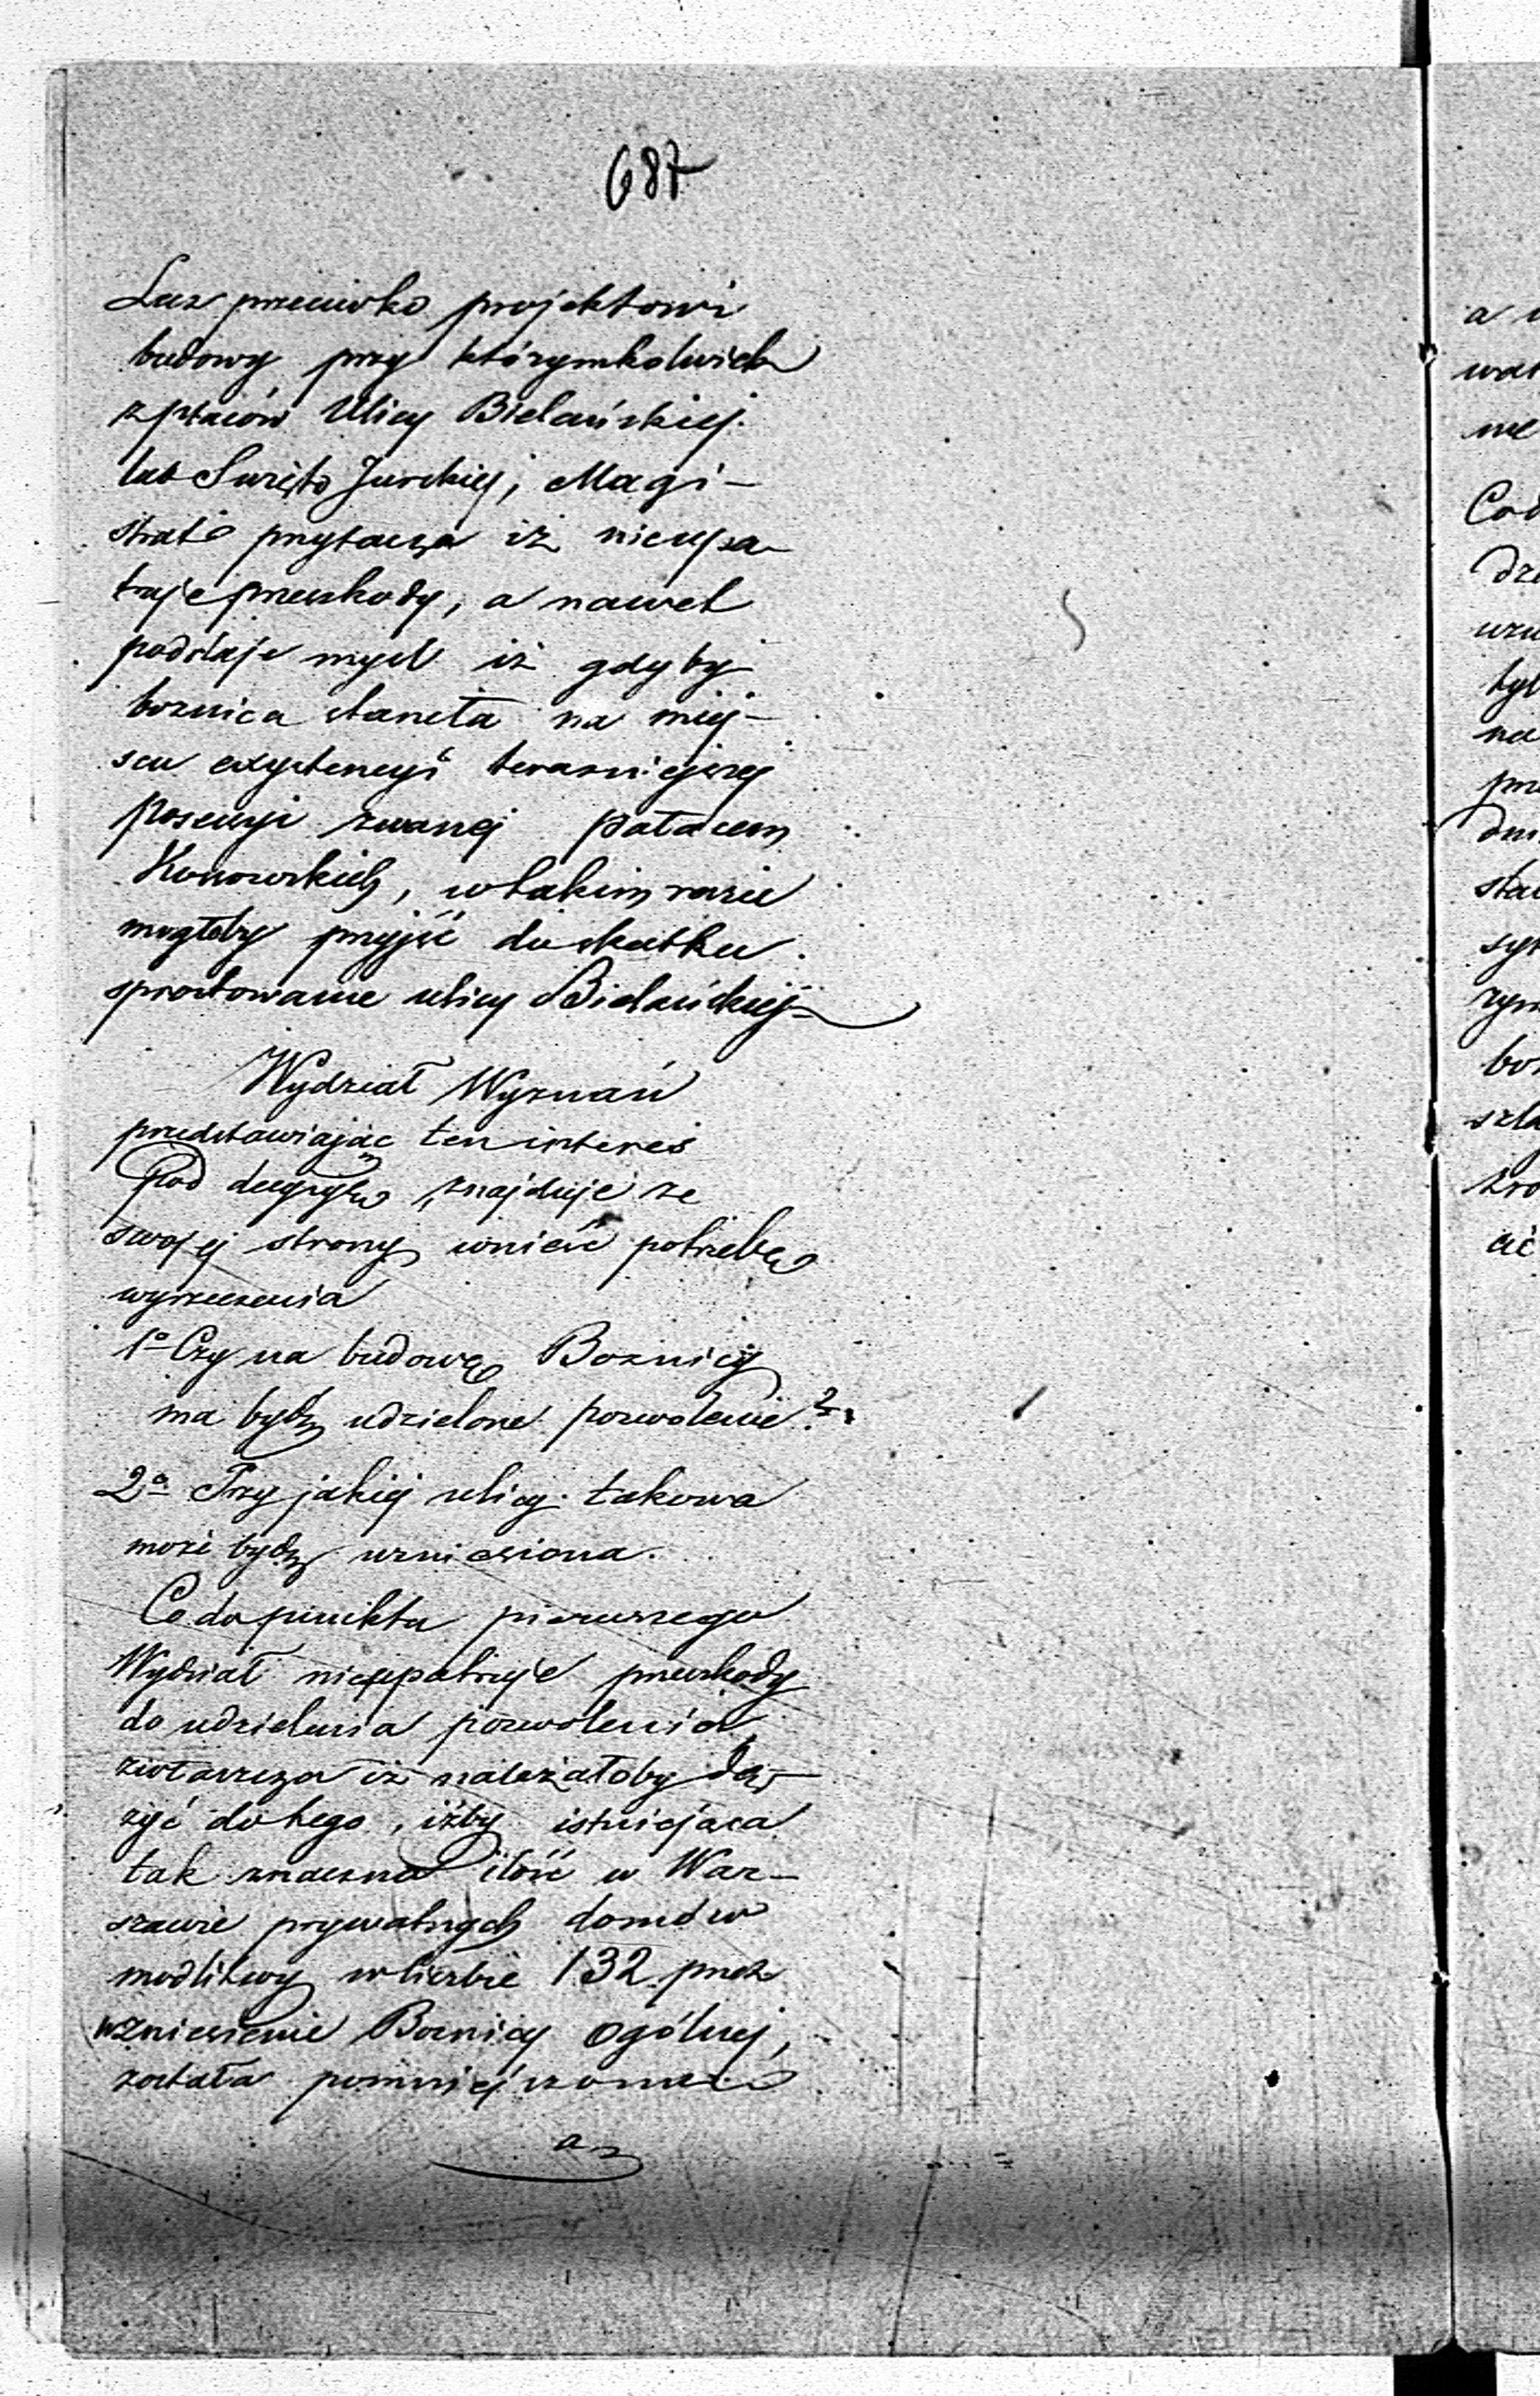 687
Lecz przeciwko projektowi
budowy przy którymkolwiek
z placów Ulicy Bielańskiej
lub Święto Jurskiej, Magi-
strat przytacza iż nieupa-
truje przeszkody, a nawet
poddaje myśl iż gdyby
boznica stanęła na miej-
scu exystencyi terazniejszej
Possessyi zwanej pałacem
w takim razie
mogłoby przyjść do skutku
sprostowanie ulicy Bielańskiej
Wydział Wyznań
przedstawiając ten interes
Pod decyzyę, znajduje ze
swojej strony wnieść potrzebę
wyrzeczenia
1o Czy na budowę Boznicy
ma bydz udzielone pozwolenie?
2o Przy jakiej ulicy takowa
może bydz wzniesiona.
Co do punktu pierwszego
Wydział nieupatruje przeszkody
do udzielenia pozwolenia,
zwłaszcza iż należałoby dą-
żyć do tego, iżby istniejąca
tak znaczna ilość w War-
szawie prywatnych domów
modlitwy w liczbie 132 przez
wzniesienie Boznicy ogólnej,
została pomniejszoną
a